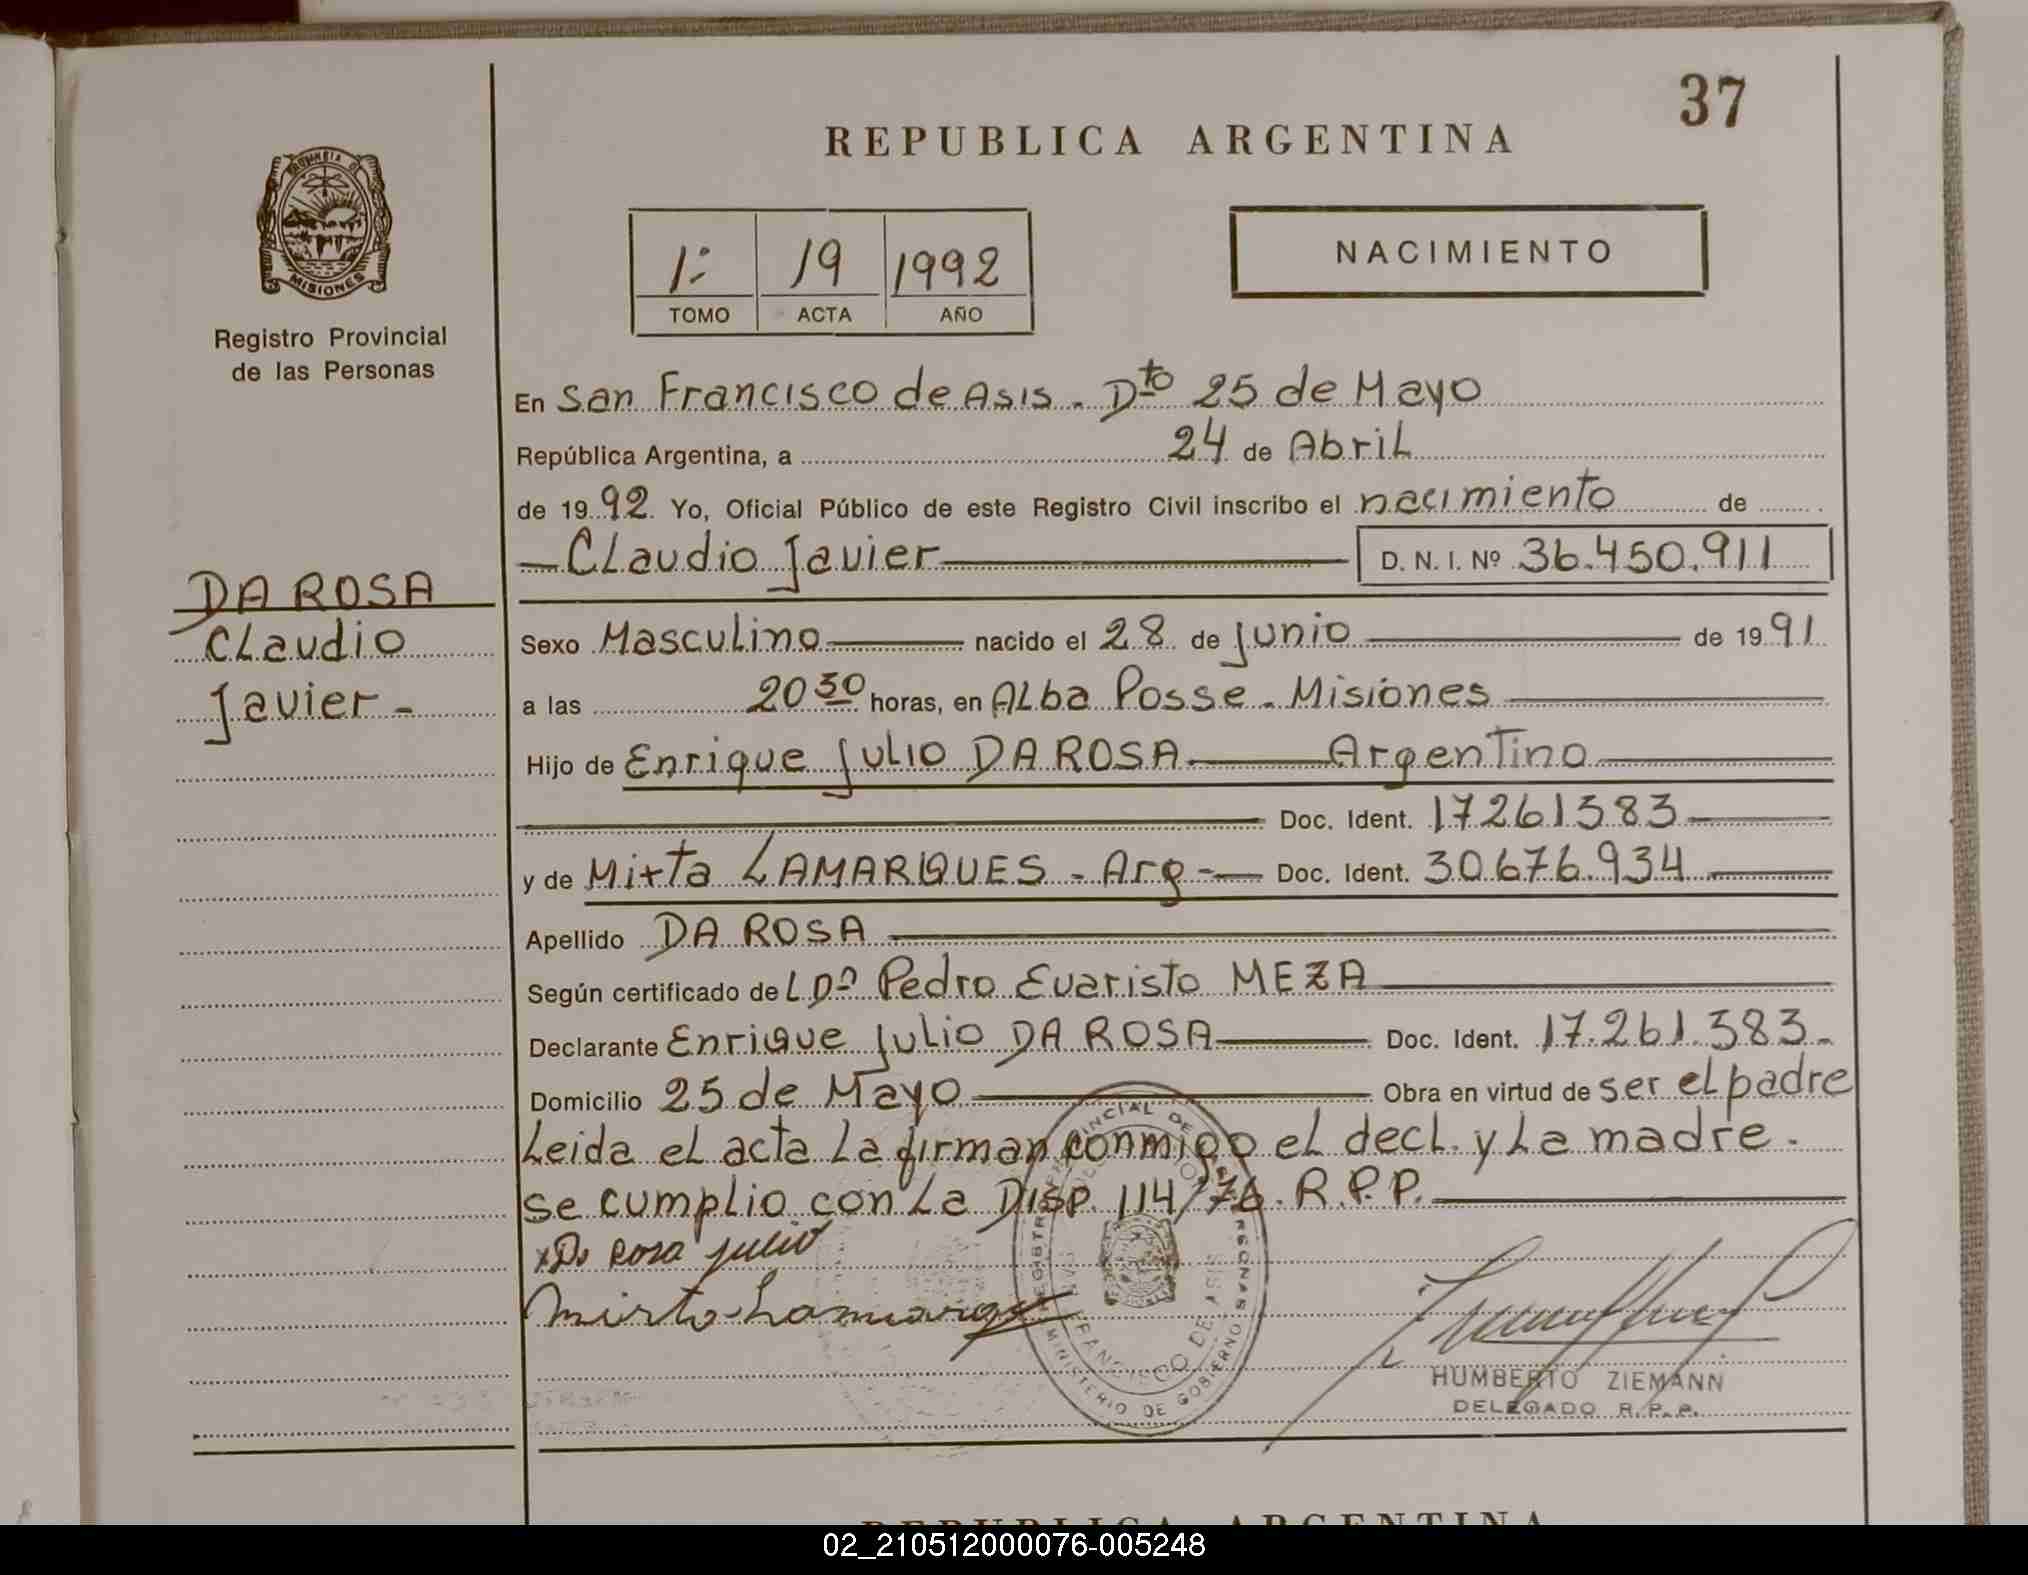 37
REPUBLICA ARGENTINA
MISIONES
Registro Provincial
de las Personas
1º 19 1992
TOMO ACTA AÑO
NACIMIENTO
En San Francisco de Asis. Dto 25 de Mayo
República Argentina, a 24 de Abril
de 1992 Yo, Oficial Público de este Registro Civil inscribo el nacimiento de
Claudio Javier D. N. I. Nº 36.450.911
DA ROSA
Claudio
Javier -
Sexo Masculino nacido el 28 de Junio de 1991
a las 20 30 horas, en Alba Posse. Misiones
Hijo de Enrique Julio DA ROSA Argentino
Doc. Ident. 17261383
y de Mirta LAMARQUES - Arg - Doc. Ident. 30.676.934
Apellido DA ROSA
Según certificado de L Dº Pedro Evaristo MEZA
Declarante Enrique Julio DA ROSA Doc. Ident. 17.261.383.
Domicilio 25 de Mayo Obra en virtud de ser el padre
Leida el acta la firman conmigo el decl. y la madre.
se cumplio con la Disp. 114/76. R.P.P.
x Da Rosa julio
Mirta Lamarque
REGISTRO PROVINCIAL DE LAS PERSONAS
FRANCISCO DE ASIS
MINISTERIO DE GOBIERNO
HUMBERTO ZIEMANN
DELEGADO R.P.P.
REPUBLICA ARGENTINA
02_210512000076-005248